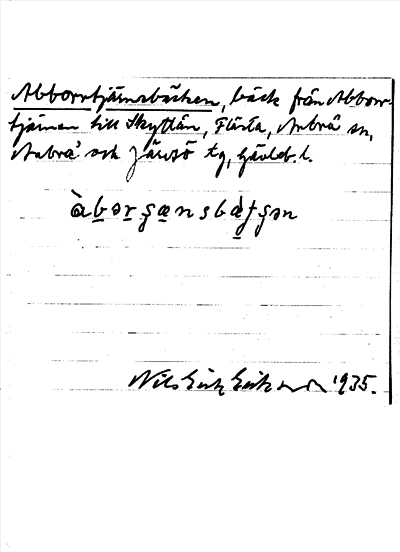 Abborrtjärnsbäcken, bäck från Abborr-
tjärnen till Skyttån, Flästa, Arbrå sn,
Arbrå och Järvsö tg, Gävleb. l.
àbərʂænsbæ̀tʂən
Nils Erik Eriksson 1935.